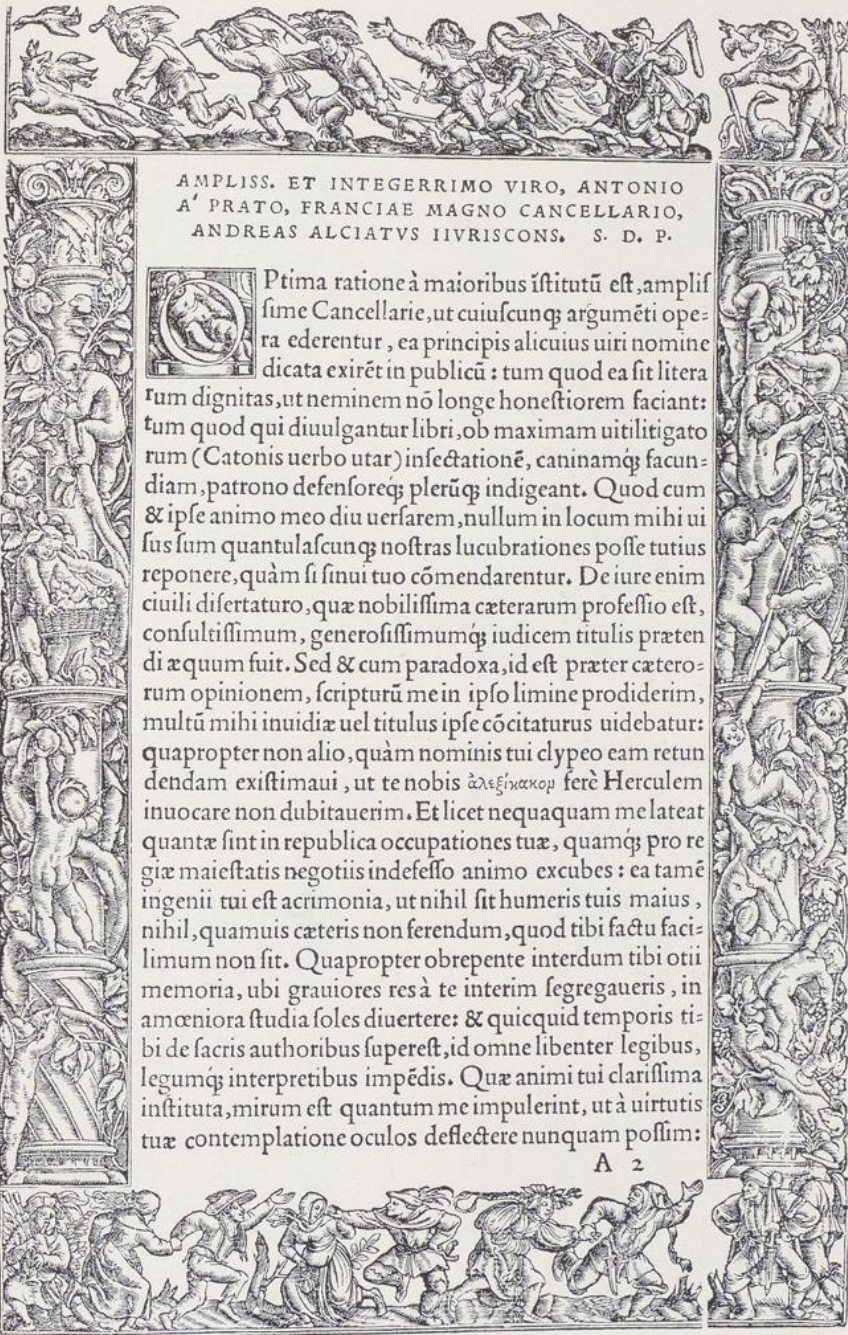 AMPLISS. ET INTEGERRIMO VIRO, ANTONIO
A' PRATO, FRANCIAE MAGNO CANCELLARIO,
ANDREAS ALCIATVS IIVRISCONS. S. D. P.
OPtima ratione à maioribus ĩſtitutũ eſt, ampliſ
ſime Cancellarie, ut cuiuſcunq; argumẽti ope=
ra ederentur, ea principis alicuius uiri nomine
dicata exirẽt in publicũ: tum quod ea ſit litera
rum dignitas, ut neminem nõ longe honeſtiorem faciant:
tum quod qui diuulgantur libri, ob maximam uitilitigato
rum (Catonis uerbo utar) inſectationẽ, caninamq́; facun=
diam, patrono defenſoreq́; plerũq; indigeant. Quod cum
& ipſe animo meo diu uerſarem, nullum in locum mihi ui
ſus ſum quantulaſcunq; noſtras lucubrationes poſſe tutius
reponere, quàm ſi ſinui tuo cõmendarentur. De iure enim
ciuili diſertaturo, quæ nobiliſſima cæterarum profeſſio eſt,
conſultiſſimum, generoſiſſimumq́; iudicem titulis præten
di æquum fuit. Sed & cum paradoxa, id eſt præter cætero=
rum opinionem, ſcripturũ me in ipſo limine prodiderim,
multũ mihi inuidiæ uel titulus ipſe cõcitaturus uidebatur:
quapropter non alio, quàm nominis tui clypeo eam retun
dendam exiſtimaui, ut te nobis ἀλεξίκακον ferè Herculem
inuocare non dubitauerim. Et licet nequaquam me lateat
quantæ ſint in republica occupationes tuæ, quamq́; pro re
giæ maieſtatis negotiis indefeſſo animo excubes: ea tamẽ
ingenii tui eſt acrimonia, ut nihil ſit humeris tuis maius,
nihil, quamuis cæteris non ferendum, quod tibi factu faci=
limum non ſit. Quapropter obrepente interdum tibi otii
memoria, ubi grauiores res à te interim ſegregaueris, in
amœniora ſtudia ſoles diuertere: & quicquid temporis ti=
bi de ſacris authoribus ſupereſt, id omne libenter legibus,
legumq́; interpretibus impẽdis. Quæ animi tui clariſſima
inſtituta, mirum eſt quantum me impulerint, ut à uirtutis
tuæ contemplatione oculos deflectere nunquam poſſim:
A 2